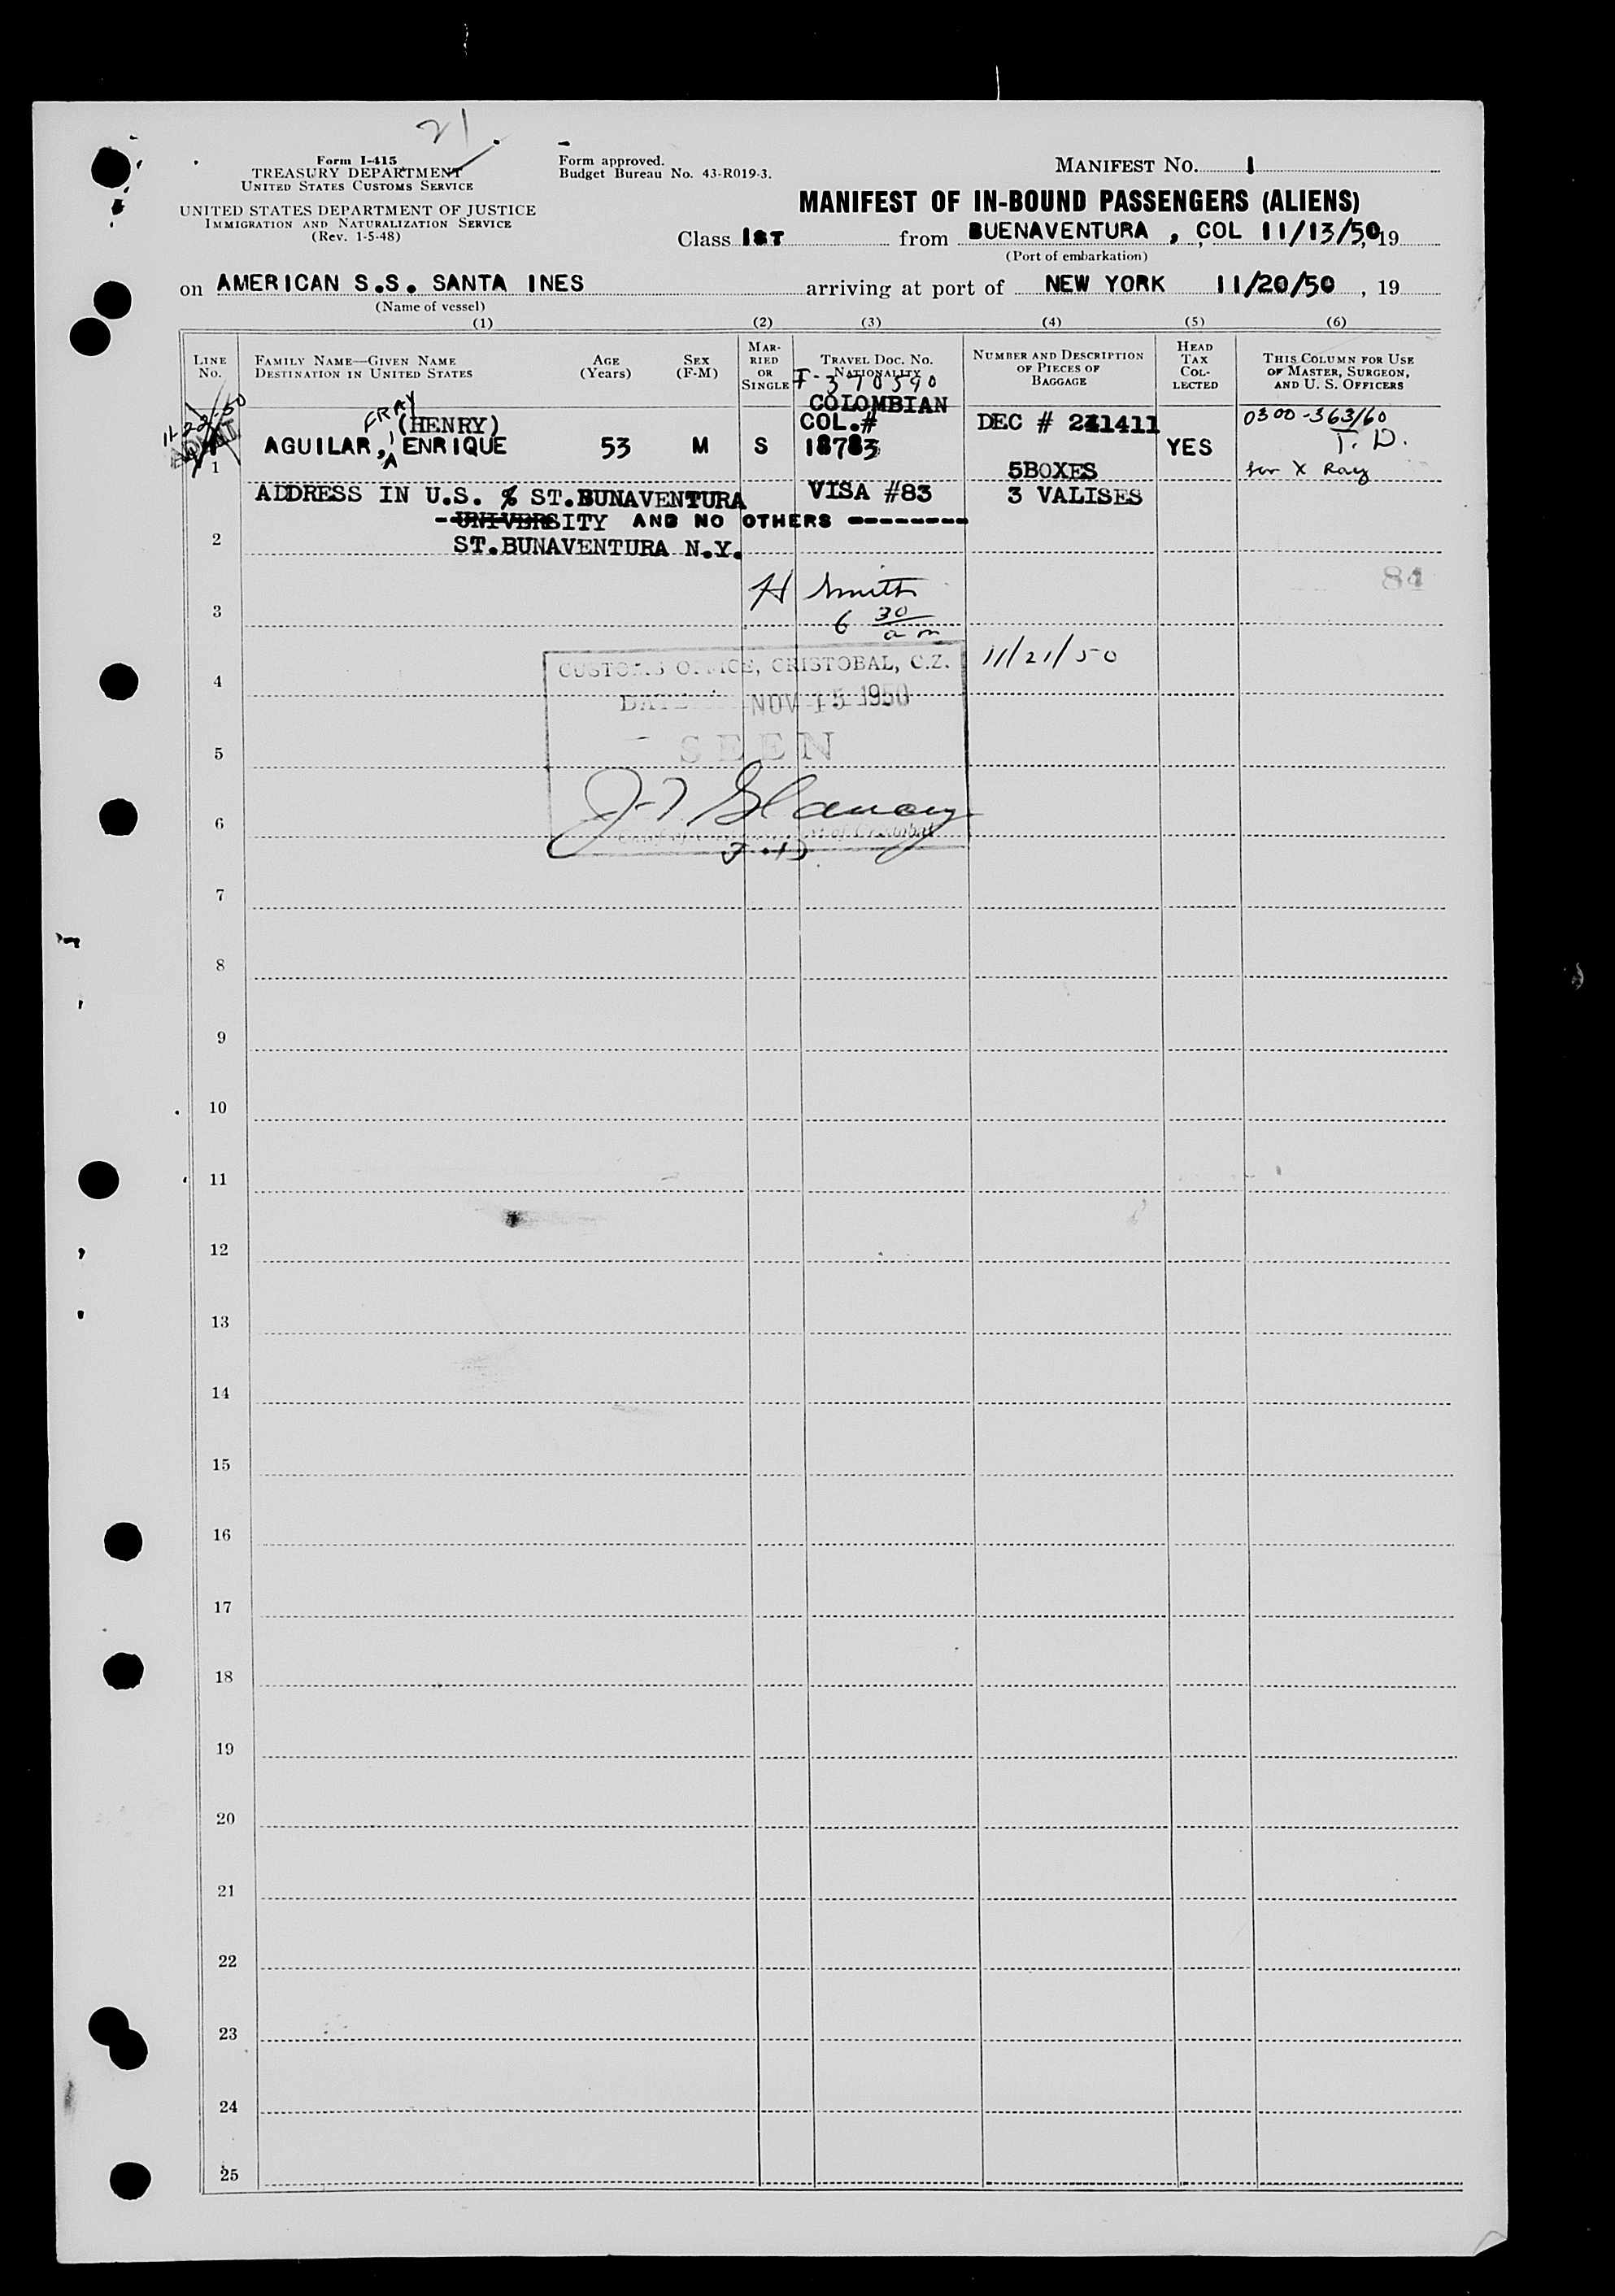 21
Form I-415
TREASURY DEPARTMENT
UNITED STATES CUSTOMS SERVICE
UNITED STATES DEPARTMENT OF JUSTICE
IMMIGRATION AND NATURALIZATION SERVICE
(Rev. 1-5-48)
Form approved.
Budget Bureau No. 43-R019-3.
MANIFEST NO. 1
MANIFEST OF IN-BOUND PASSENGERS (ALIENS)
Class 1ST from BUENAVENTURA , COL 11/13/50, 19
(Port of embarkation)
on AMERICAN S.S. SANTA INES arriving at port of NEW YORK 11/20/50 , 19
(Name of vessel)
(1) (2) (3) (4) (5) (6)
LINE NO.
FAMILY NAME—GIVEN NAME
DESTINATION IN UNITED STATES
AGE
(Years)
SEX
(F-M)
MAR-
RIED
OR
SINGLE
TRAVEL DOC. NO.
NATIONALITY
NUMBER AND DESCRIPTION
OF PIECES OF
BAGGAGE
HEAD
TAX
COL-
LECTED
THIS COLUMN FOR USE
OF MASTER, SURGEON,
AND U. S. OFFICERS
I-370590
COLOMBIAN
11-22-50
ADMIT
FRAY
(HENRY) COL.# DEC # 241411 0300-363/60
AGUILAR, ENRIQUE 53 M S 18783 YES T. D.
1 5BOXES for X Ray
ADDRESS IN U.S. % ST.BUNAVENTURA VISA #83 3 VALISES
UNIVERSITY AND NO OTHERS
2 ST.BUNAVENTURA N.Y.
84
H Smith
3 6 30
a m
11/21/50
CUSTOMS OFFICE, CRISTOBAL, C.Z.
4
DATE NOV 15 1950
SEEN
5
6
7
8
9
10
11
12
13
14
15
16
17
18
19
20
21
22
23
24
25